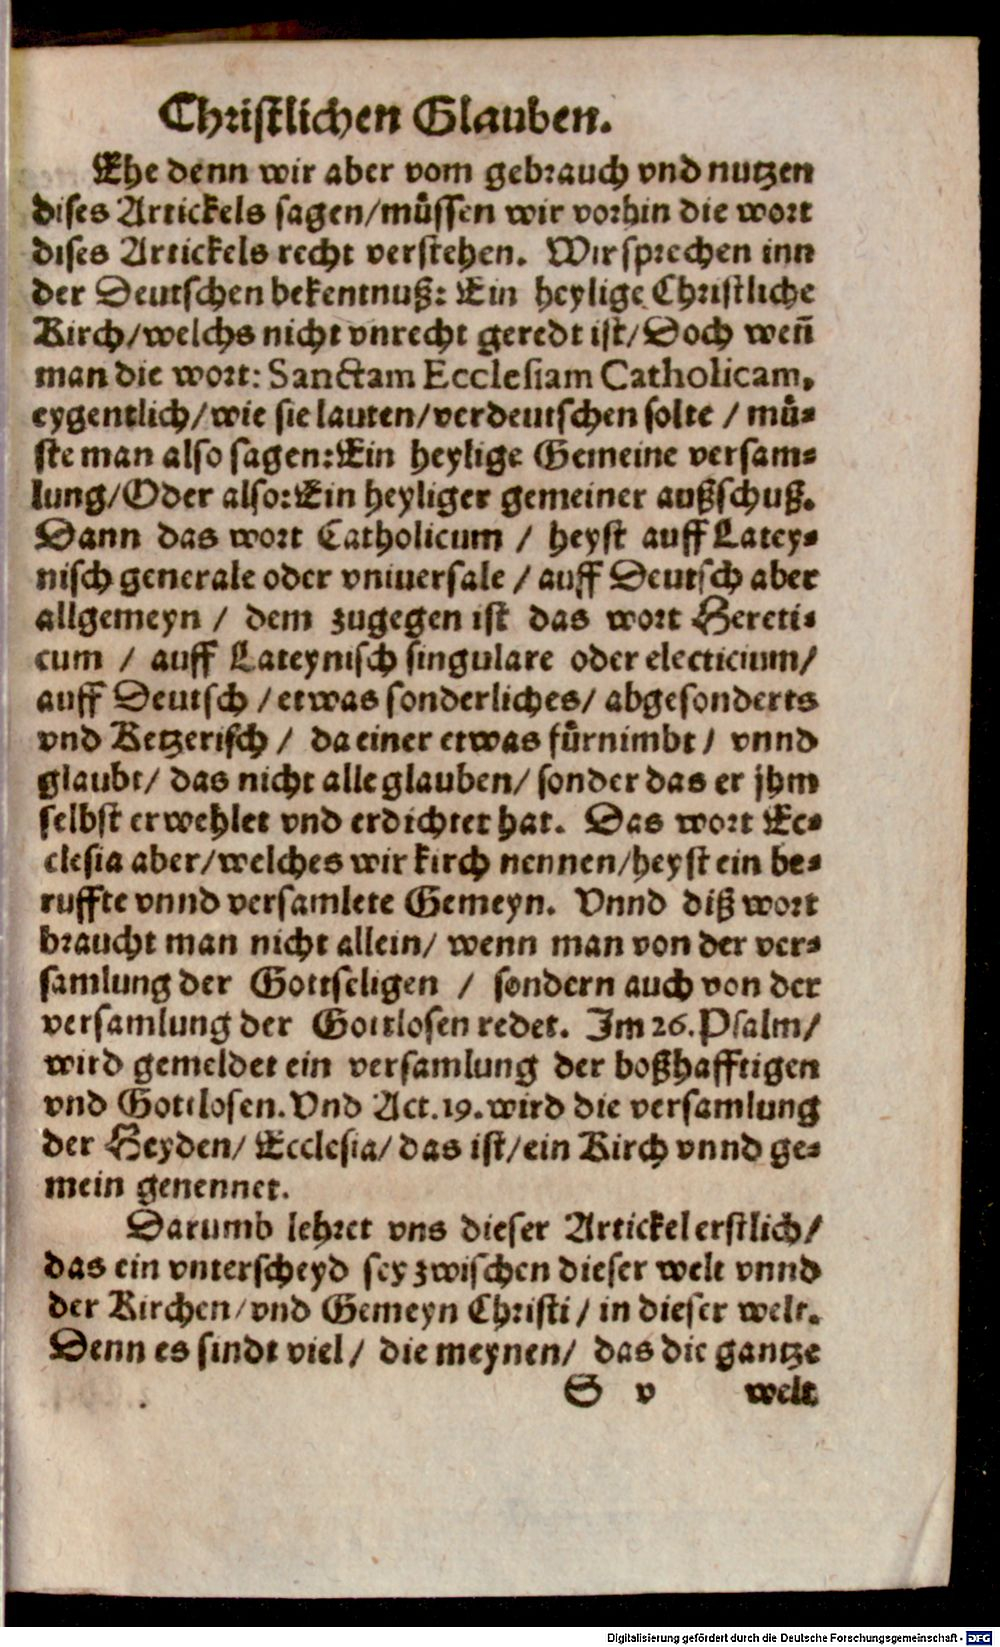 Christlichen Glauben.
Ehe denn wir aber vom gebrauch vnd nutzen
dises Artickels sagen/müssen wir vorhin die wort
dises Artickels recht verstehen. Wir sprechen inn
der Deutschen bekentnuß: Ein heylige Christliche
Kirch/welchs nicht vnrecht geredt ist/Doch weñ
man die wort: Sanctam Ecclesiam Catholicam,
eygentlich/wie sie lauten/verdeutschen solte / mü-
ste man also sagen:Ein heylige Gemeine versam-
lung/Oder also:Ein heyliger gemeiner außschuß.
Dann das wort Catholicum / heyst auff Latey-
nisch generale oder vniuersale / auff Deutsch aber
allgemeyn / dem zugegen ist das wort Hereti-
cum / auff Lateynisch singulare oder electicium/
auff Deutsch /etwas sonderliches/ abgesonderts
vnd Ketzerisch / da einer etwas fürnimbt / vnnd
glaubt/ das nicht alle glauben/ sonder das er jhm
selbst erwehlet vnd erdichtet hat. Das wort Ec-
clesia aber/welches wir kirch nennen/heyst ein be-
ruffte vnnd versamlete Gemeyn. Vnnd diß wort
braucht man nicht allein/ wenn man von der ver-
samlung der Gottseligen / sondern auch von der
versamlung der Gottlosen redet. Im 26. Psalm/
wird gemeldet ein versamlung der boßhafftigen
vnd Gottlosen. Vnd Act. 19. wird die versamlung
der Heyden/ Ecclesia/ das ist/ein Kirch vnnd ge-
mein genennet.
Darumb lehret vns dieser Artickel erstlich/
das ein vnterscheyd sey zwischen dieser welt vnnd
der Kirchen/vnd Gemeyn Christi / in dieser welt.
Denn es sindt viel / die meynen/ das die gantze
S v welt
Digitalisierung gefördert durch die Deutsche Forschungsgemeinschaft - DFG